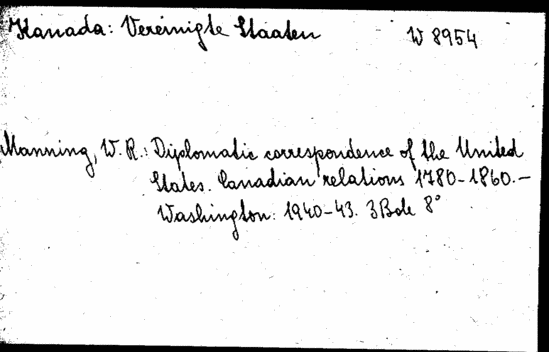 Kanada: Vereinigte Staaten W 8954
Manning, W. R.: Diplomatic correspondence of the United
States. Canadian relations 1780-1860.—
Washington: 1940-43. 3 Bde 8°